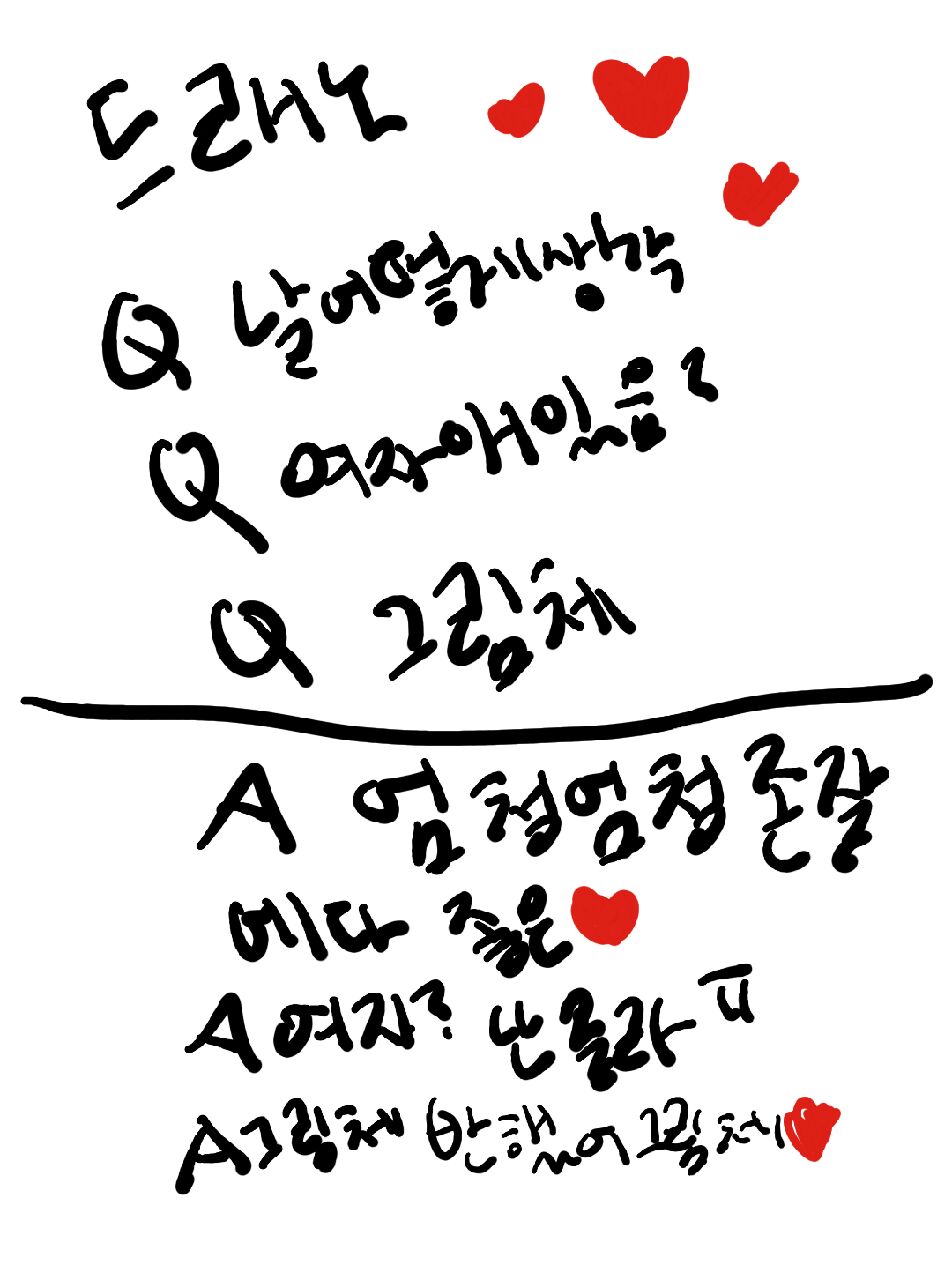 드래노
Q 날어떻게생각
Q 여자애있음?
Q 그림체
A 엄청엄청존잘
에다 좋은
A 여자? 난몰라ㅠ
A그림체 반했어그림체